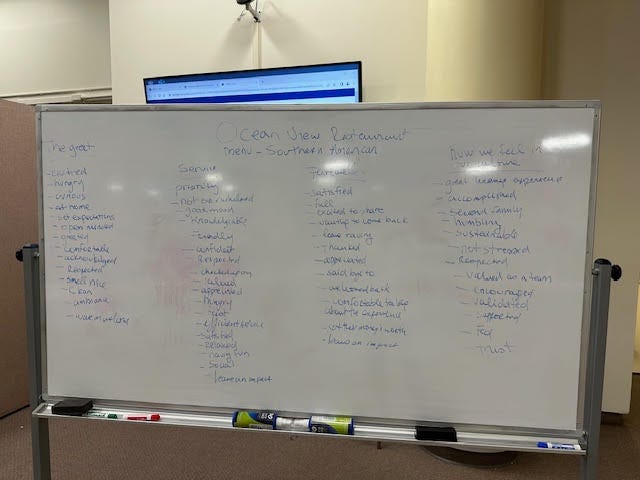 Ocean View Restaurant
menu - Southern American
The great
- excited
- hungry
- curious
- at home
- set expectations
- open minded
- greeted
- comfortable
- acknowledged
- Respected
- smell nice
- clean
- ambiance
- warm welcome
Service
priority
- not overwhelmed
- good mood
- knowledgeable
- friendly
- confident
- Respected
- checked upon
- valued
- appreciated
- hungry
- efficient service
- satisfied
- relaxed
- having fun
- social
- leave an impact
- satisfied
- full
- excited to share
- wanting to come back
- leave raving
- Thanked
- appreciated
- said bye to
- welcomed back
- comfortable talking
about the experience
- got their money's worth
- leave an impact
How we feel in
- great learning experience
- accomplished
- second family
- humbling
- sustainable
- not stressed
- Respected
- valued as a team
- encouraged
- validated
- supported
- fed
- Trust